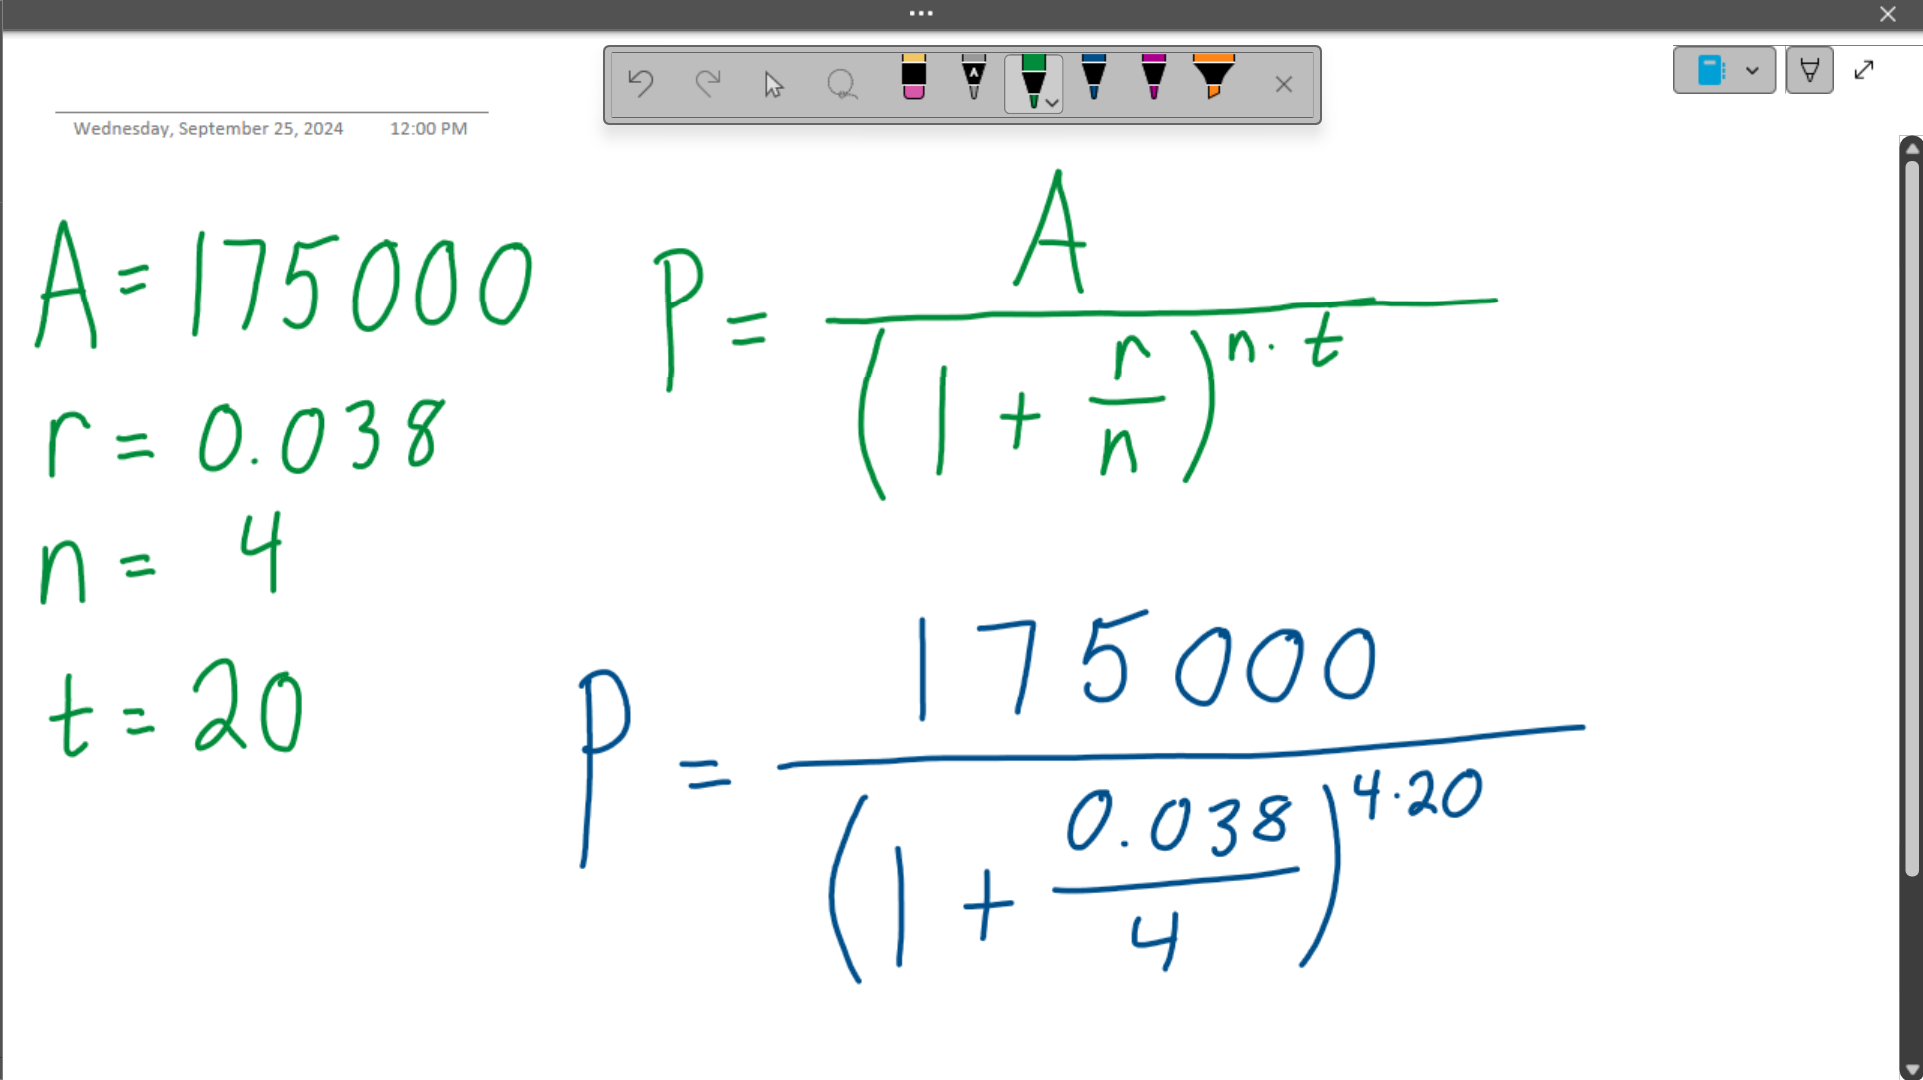 Wednesday, September 25, 2024 12:00 PM
A = 175000
r = 0.038
n = 4
t = 20
P = A / (1 + r/n)^(n · t)
P = 175000 / (1 + 0.038/4)^(4 · 20)